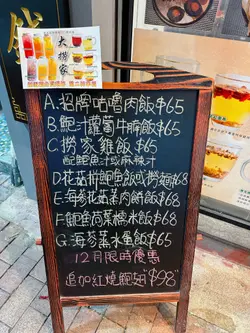 大撈家
A.招牌咕嚕肉飯$65
B.鮑汁蘿蔔牛腩飯$65
C.撈家雞飯$65
配鮑魚汁或麻辣汁
D.花菇拼鮑魚飯或撈麵$68
E.海參花菇蒸肉餅飯$68
F.鮑魚荷葉糯米飯$68
G.海參蒸水蛋飯$65
12月限時優惠
追加紅燒鮑翅"$98"